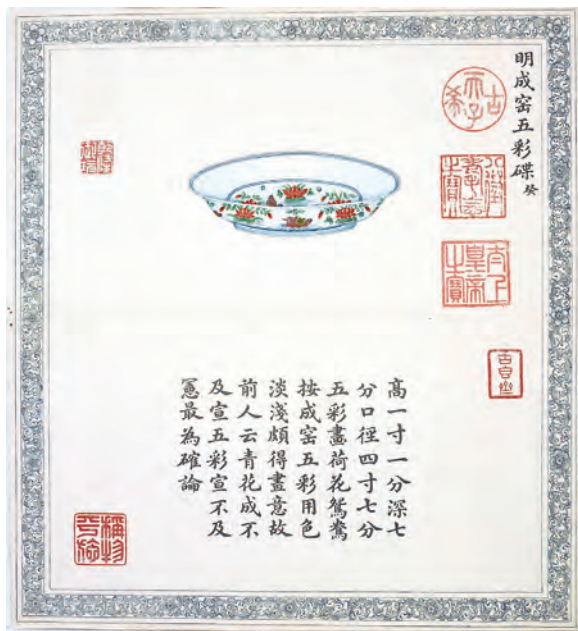 明成窑五彩碟 癸
古希天子
八徵耄念之寶
太上皇帝之寶
高一寸一分深七
分口徑四寸七分
五彩畫荷花鴛鴦
按成窑五彩用色
淡淺頗得畫意故
前人云青花成不
及宣五彩宣不及
憲最為確論
稱物平施